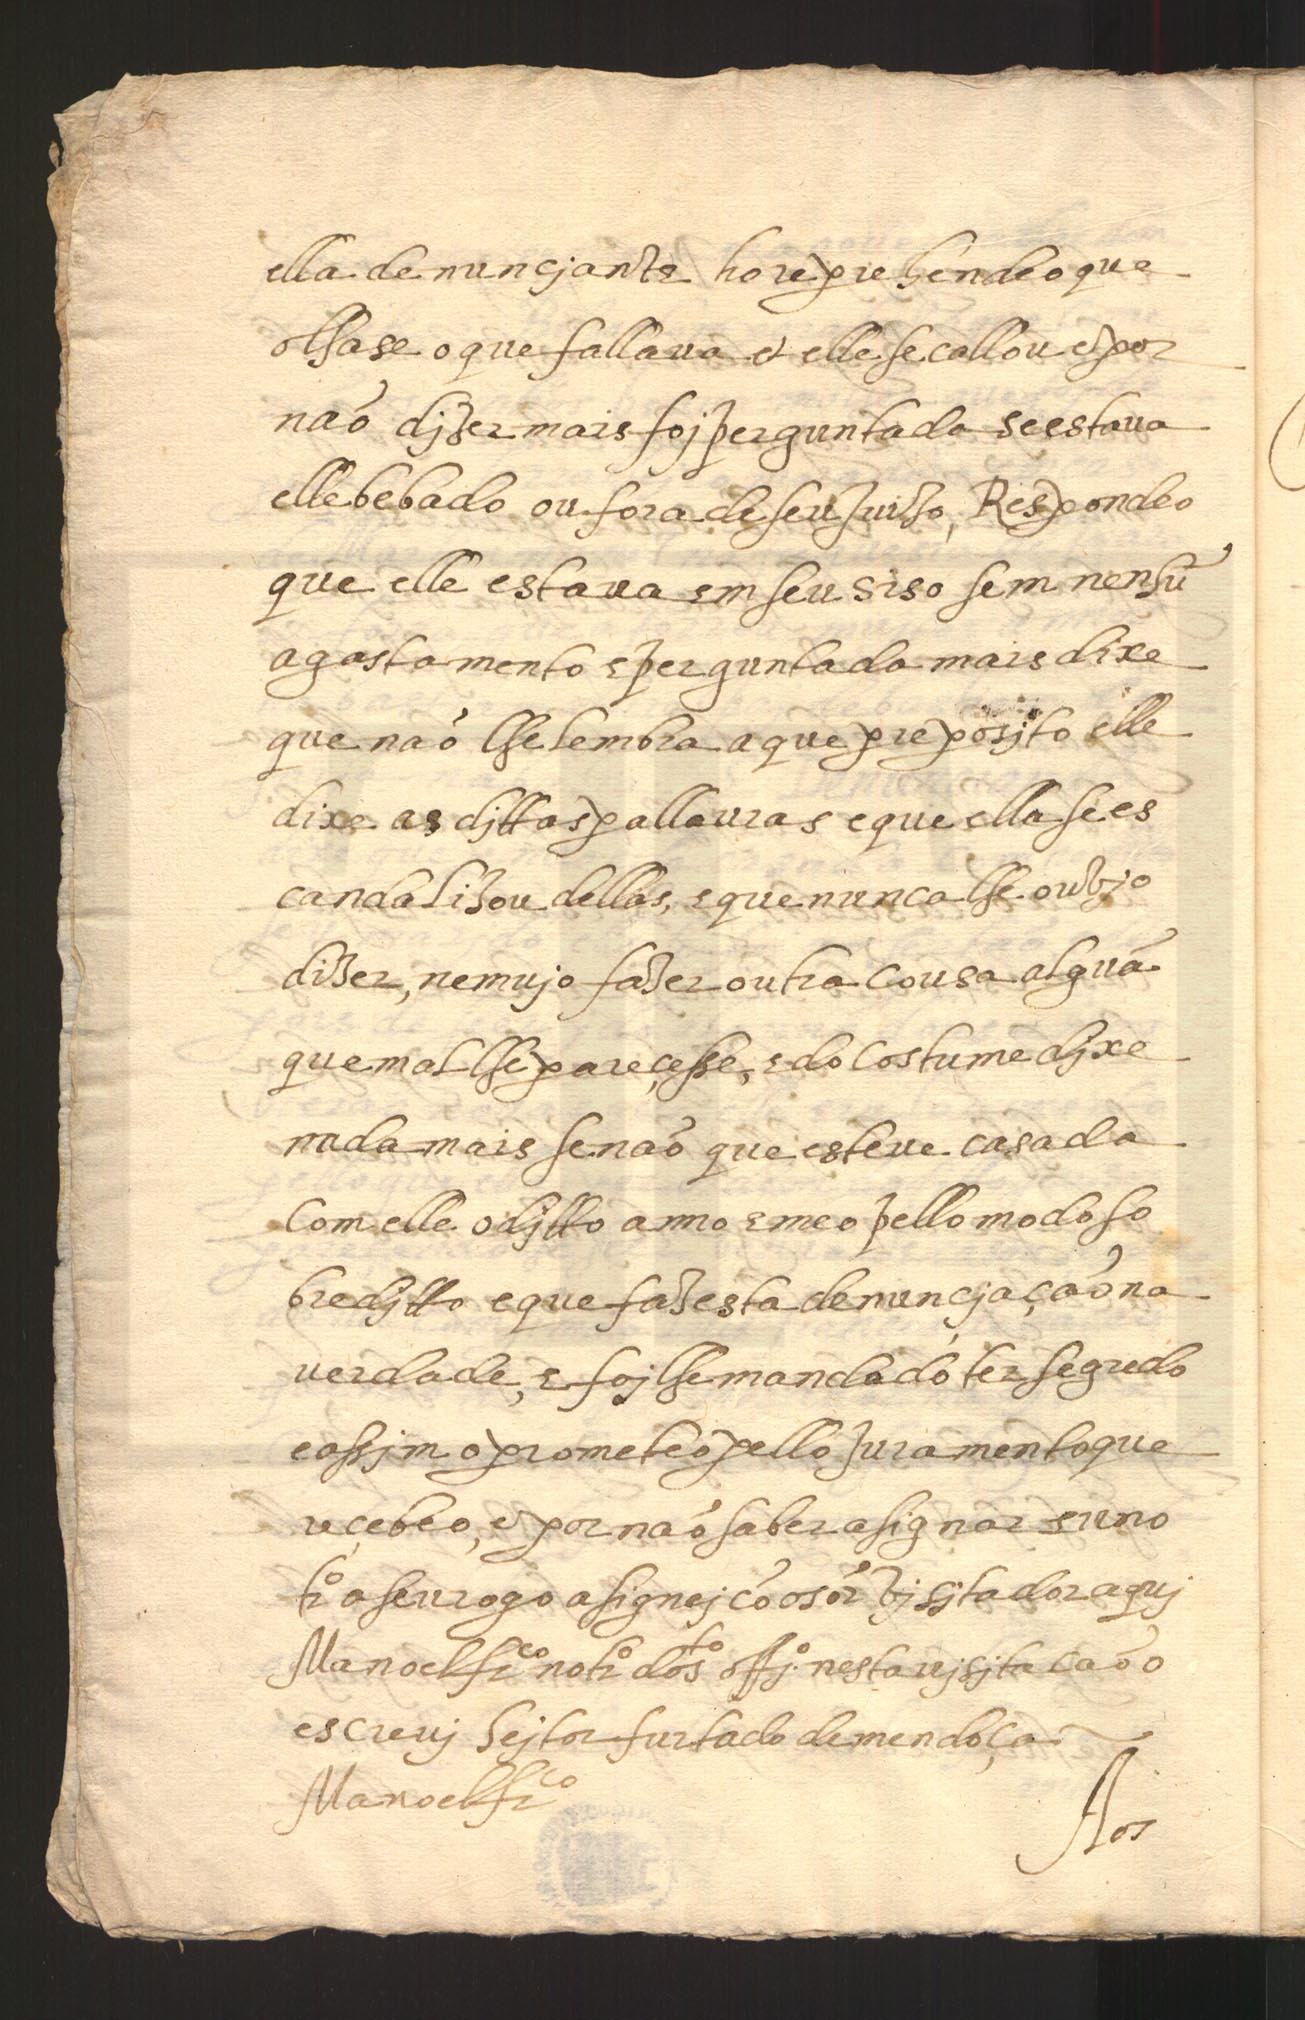 ella denunçjante ho reprehendeo que
olhase o que fallaua et elle se callou e por
não djzer mais foj perguntada se estaua
elle bebado ou fora de seu juizo, Respondeo
que elle estaua em seu siso sem nenhũ
agastamento e perguntada mais dixe
que não lhe lembra a que preposjto elle
dixe as djttas pallauras e que ella se es
candalizou dellas, e que nunca lhe ouvjo
dizer, nem ujo fazer outra cousa algũa
que mal lhe pareçesse, e do costume djxe
nada mais senão que esteue casada
com elle o djtto anno e meo pello modo so
bredjtto e que faz esta denunçjação na
verdade, e foj lhe mandado ter segredo
e assjm o prometeo pello juramento que
reçebeo, e por não saber asignar eu no
tro a seu rogo asignej cõ o sor vjsjtador aquj
Manoel frco notro do sto offjo nesta vjsjtação o
escreuj hejtor furtado de mendoça
Manoel frco
Aos